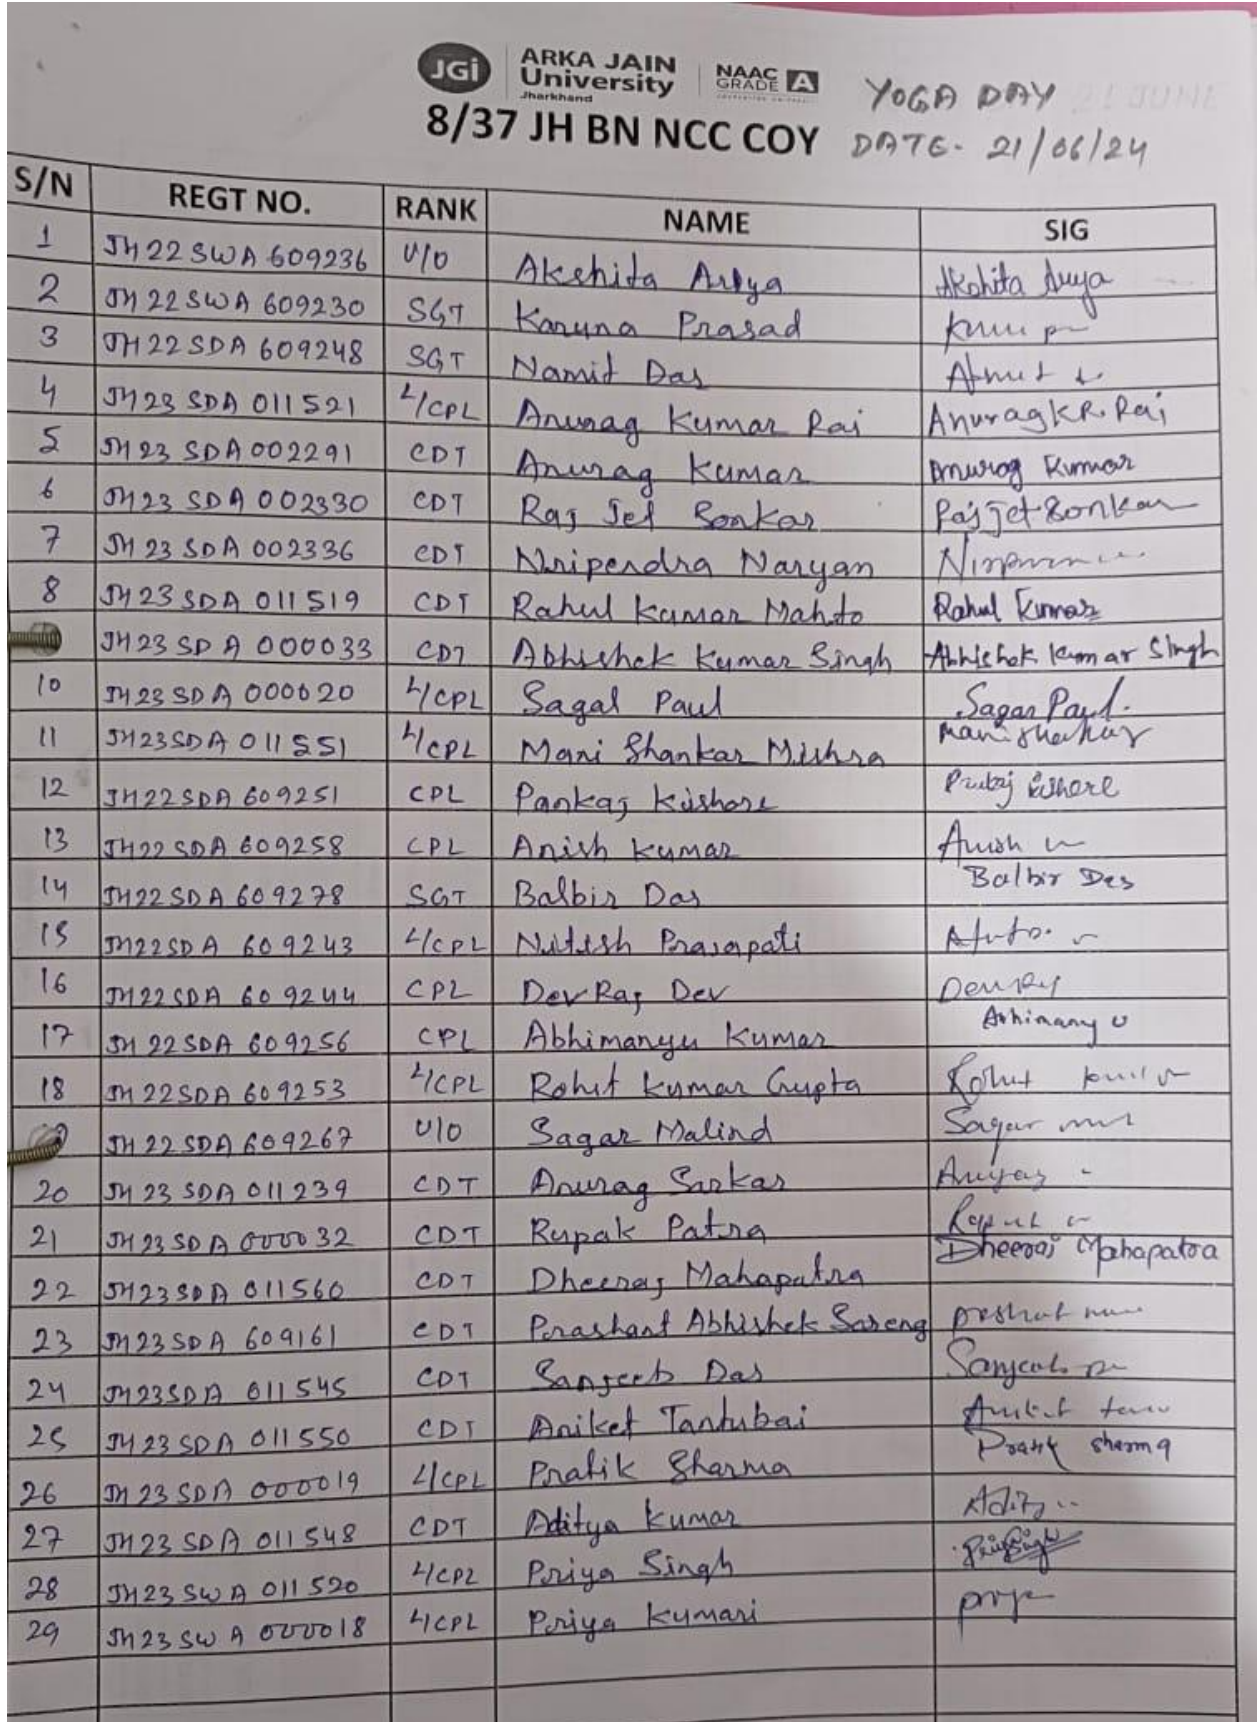 JGi ARKA JAIN University Jharkhand NAAC GRADE A
YOGA DAY
8/37 JH BN NCC COY DATE- 21/06/24
S/N REGT NO. RANK NAME SIG
1 JH22SWA609236 U/O Akshita Arya Akshita Arya
2 JH22SWA609230 SGT Karuna Prasad
3 JH22SDA609248 SGT Namit Das
4 JH23SDA011521 L/CPL Anurag Kumar Rai Anurag KR. Rai
5 JH23SDA002291 CDT Anurag Kumar Anurag Kumar
6 JH23SDA002330 CDT Raj Jet Sonkar Raj Jet Sonkar
7 JH23SDA002336 CDT Nripendra Naryan
8 JH23SDA011519 CDT Rahul Kumar Mahto Rahul Kumar
JH23SDA000033 CDT Abhishek Kumar Singh Abhishek Kumar Singh
10 JH23SDA000020 L/CPL Sagal Paul Sagar Paul.
11 JH23SDA011551 L/CPL Mani Shankar Mishra Manishankar
12 JH22SDA609251 CPL Pankaj Kishore Kishore
13 JH22SDA609258 CPL Anish Kumar Anish
14 JH22SDA609278 SGT Balbir Das Balbir Das
15 JH22SDA609243 L/CPL Nitish Prajapati
16 JH22SDA609244 CPL Dev Raj Dev
17 JH22SDA609256 CPL Abhimanyu Kumar Abhimanyu
18 JH22SDA609253 L/CPL Rohit Kumar Gupta Rohit
JH22SDA609267 U/O Sagar Malind Sagar
20 JH23SDA011239 CDT Anurag Sarkar
21 JH23SDA000032 CDT Rupak Patra
22 JH23SDA011560 CDT Dheeraj Mahapatra Dheeraj Mahapatra
23 JH23SDA609161 CDT Prashant Abhishek Sareng
24 JH23SDA011545 CDT Sanjeeb Das
25 JH23SDA011550 CDT Aniket Tantubai
26 JH23SDA000019 L/CPL Pratik Sharma Pratik Sharma
27 JH23SDA011548 CDT Aditya Kumar
28 JH23SWA011520 L/CPL Priya Singh Priya Singh
29 JH23SWA000018 L/CPL Priya Kumari